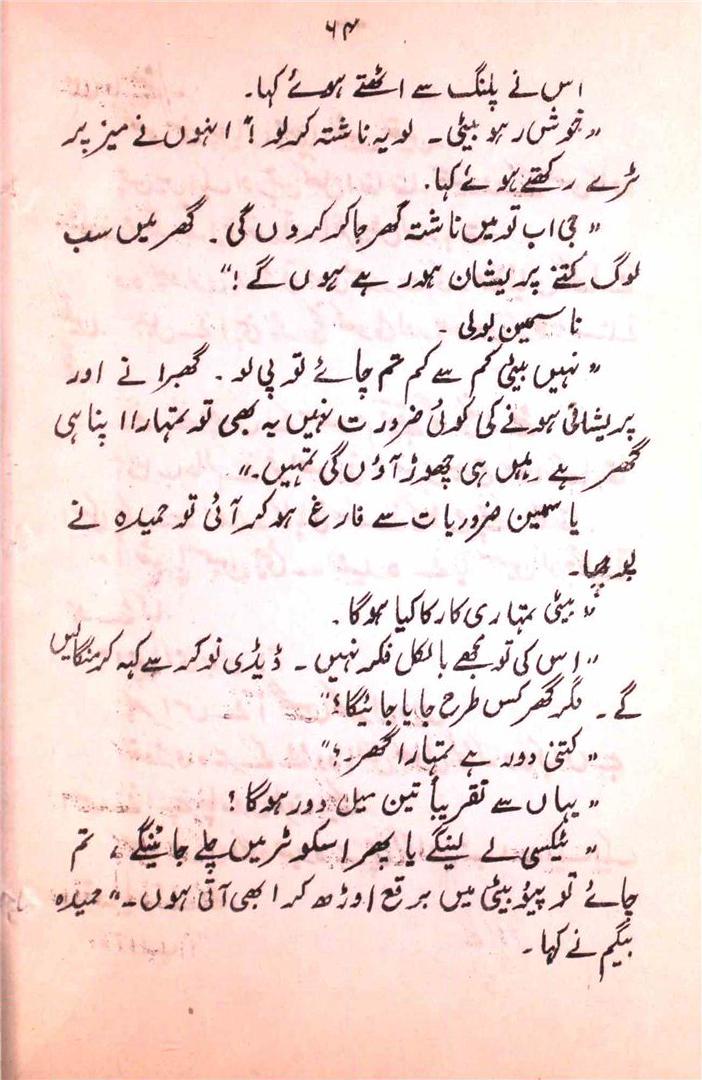 ۶۴
اس نے پلنگ سے اٹھتے ہوئے کہا۔
”خوش رہو بیٹی۔ لو یہ ناشتہ کر لو!“ انہوں نے میز پر
ٹرے رکھتے ہوئے کہا۔
”جی اب تو میں ناشتہ گھر جا کر کروں گی۔ گھر میں سب
لوگ کتنے پریشان ہو رہے ہوں گے!“
یاسمین بولی۔
”نہیں بیٹی کم سے کم تم چائے تو پی لو۔ گھبرانے اور
پریشانی ہونے کی کوئی ضرورت نہیں یہ بھی تو تمہارا اپنا ہی
گھر ہے میں ہی چھوڑ آؤں گی تمہیں۔“
یاسمین ضروریات سے فارغ ہو کر آئی تو حمیدہ نے
پوچھا۔
”بیٹی تمہاری کار کا کیا ہوگا۔
”اس کی تو مجھے بالکل فکر نہیں۔ ڈیڈی نوکر سے کہہ کر منگا لیں
گے۔ مگر گھر کس طرح جایا جائیگا؟“
”کتنی دور ہے تمہارا گھر؟“
”یہاں سے تقریباً تین میل دور ہوگا!
”ٹیکسی لے لینگے یا پھر اسکوٹر میں چلے جائینگے، تم
چائے تو پیئو بیٹی میں برقع اوڑھ کر ابھی آتی ہوں۔“ حمیدہ
بیگم نے کہا۔